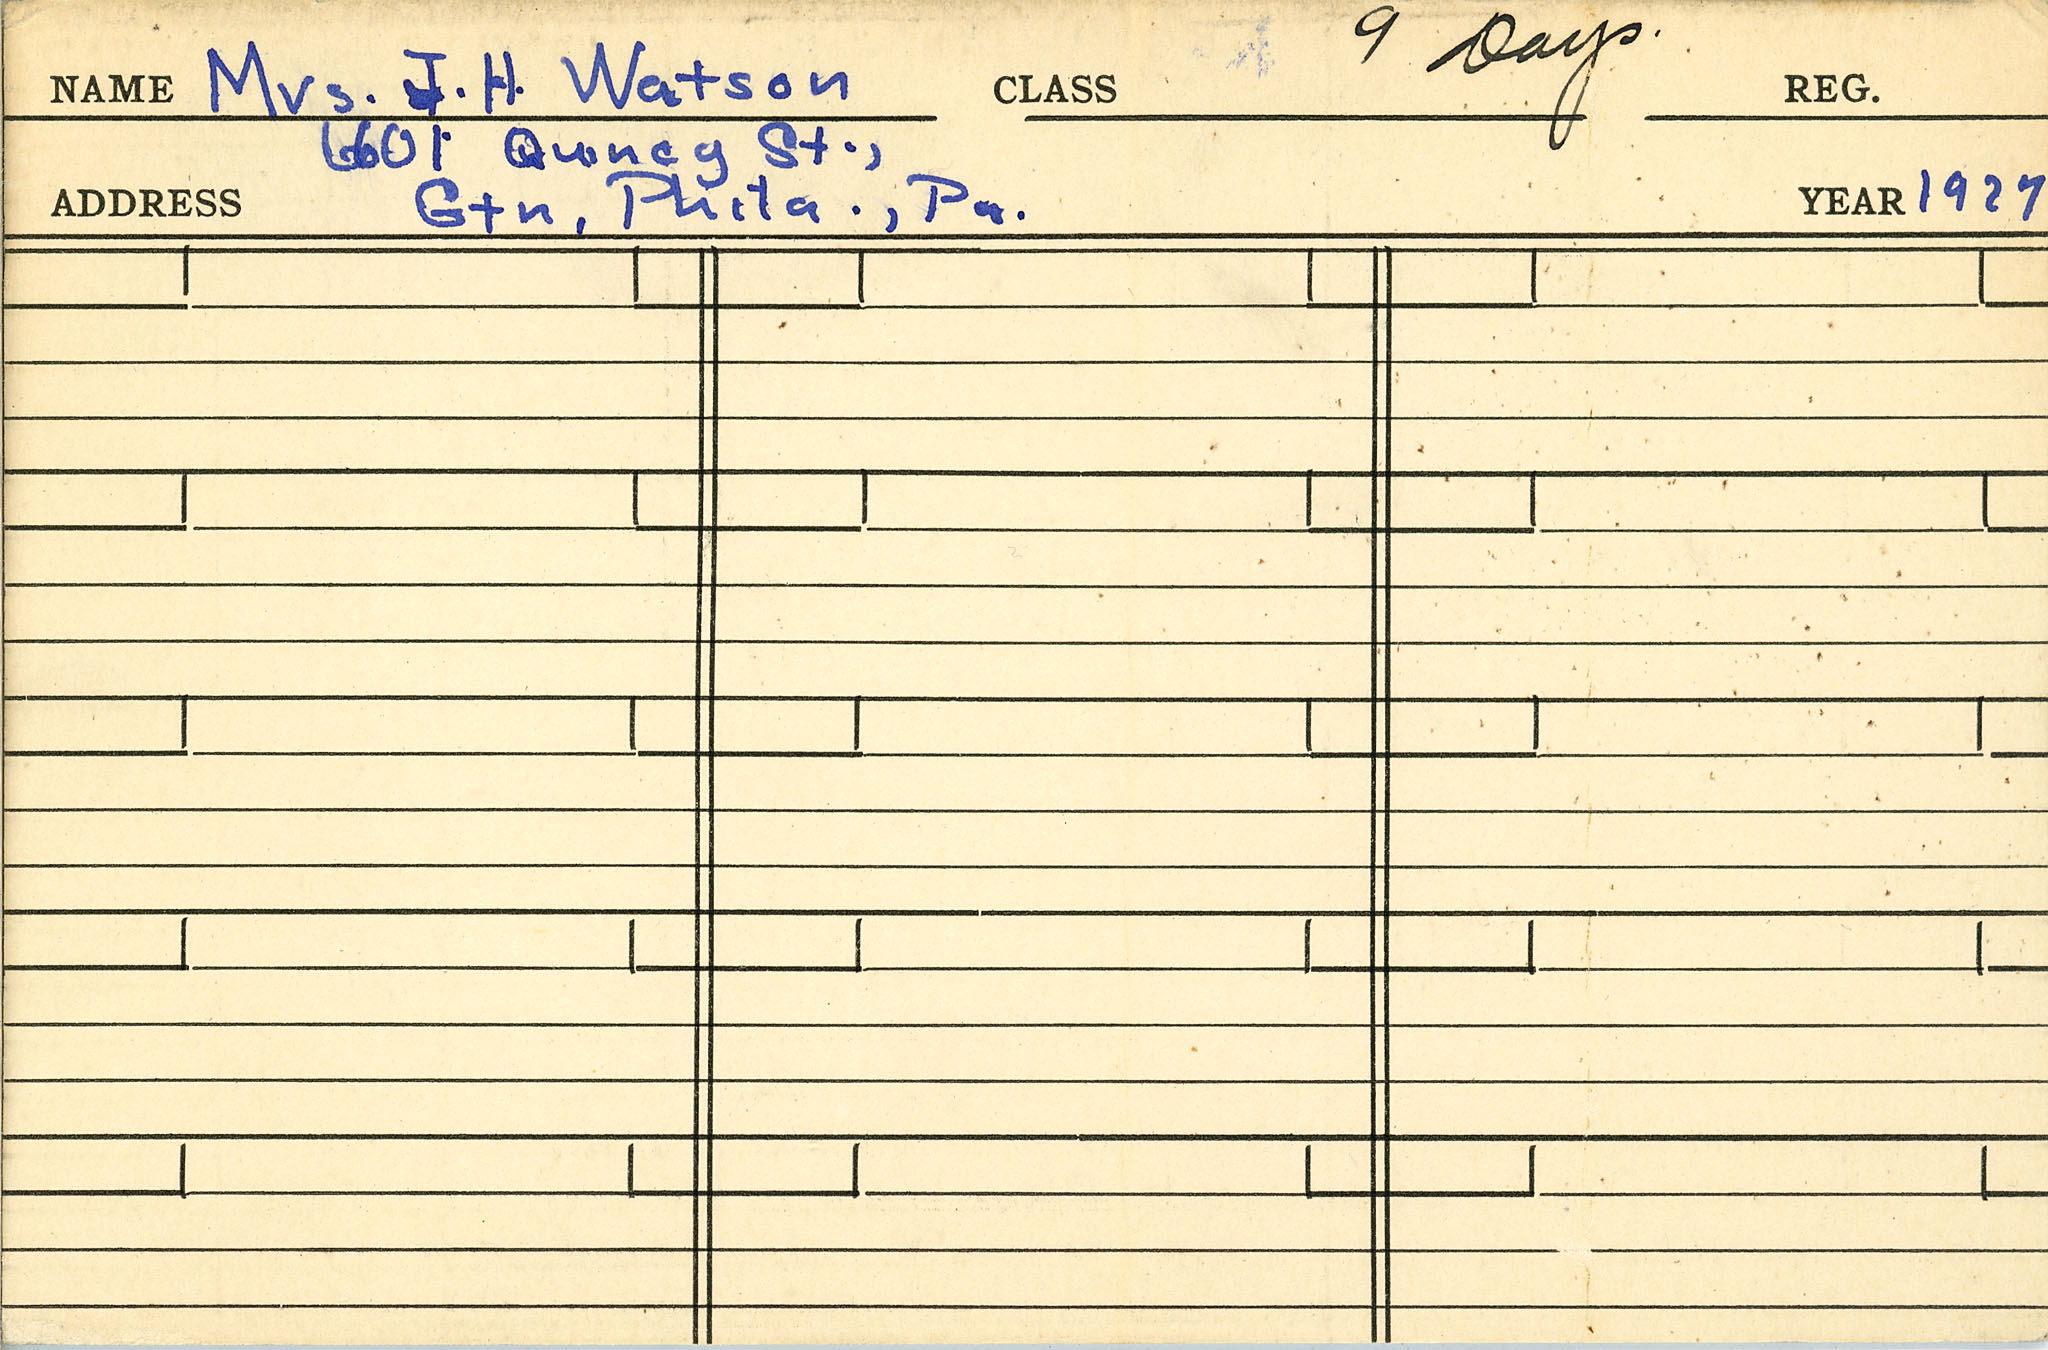 9 Days.
NAME Mrs. J. H. Watson CLASS REG.
6601 Quincy St.,
ADDRESS Gtn, Phila., Pa. YEAR 1927